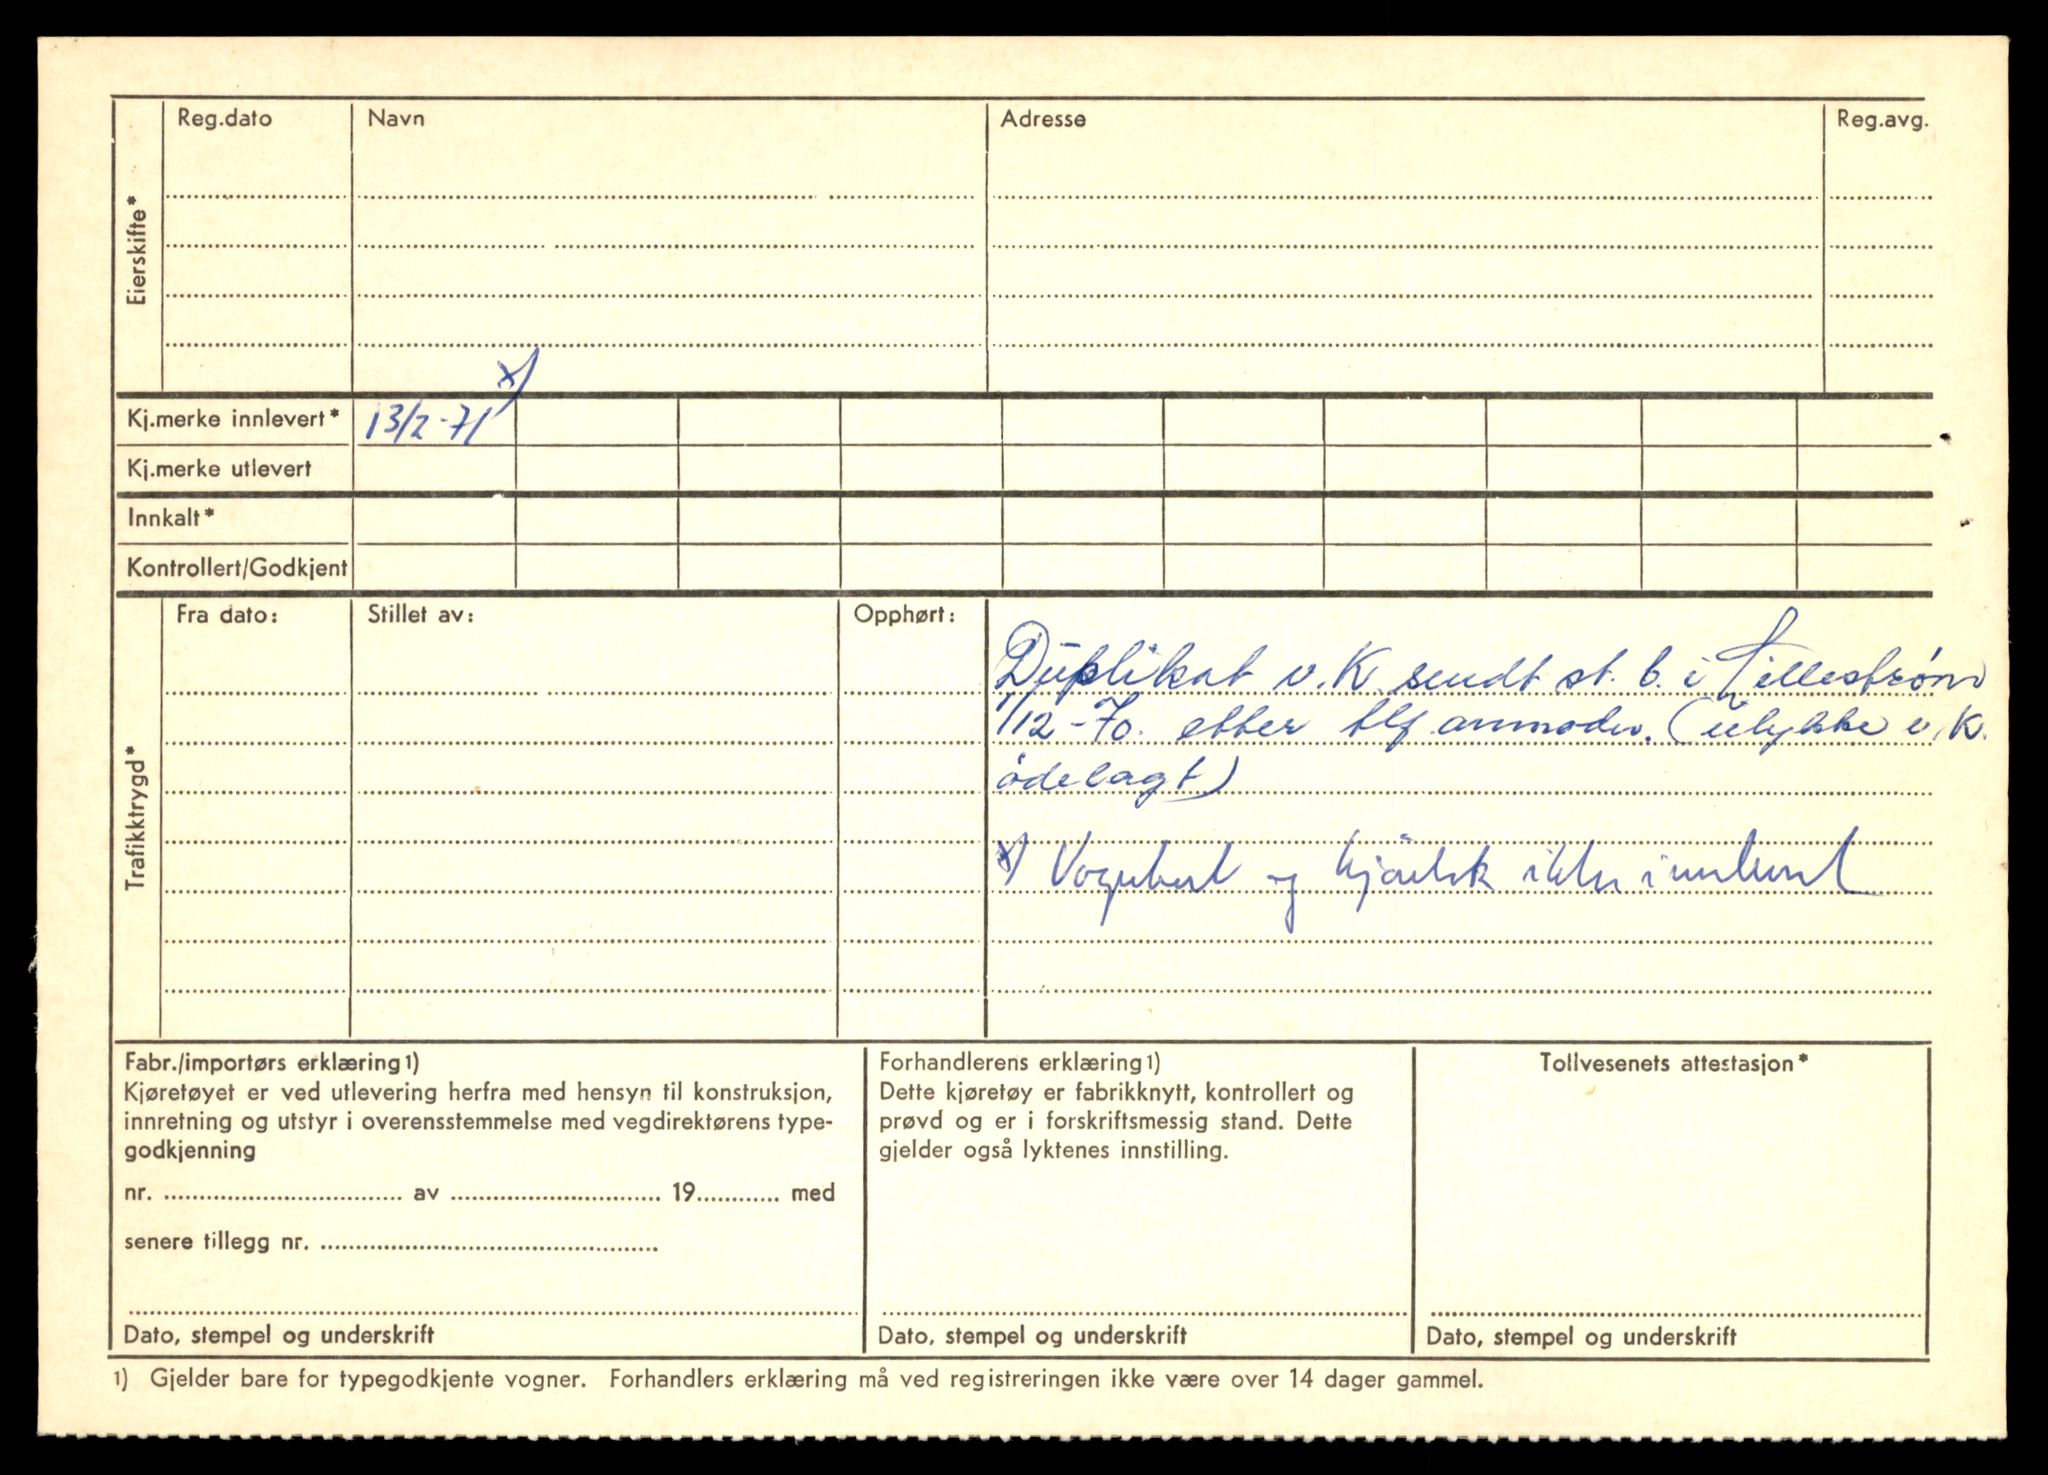 Eierskifte*
Reg.dato Navn Adresse Reg.avg.
Kj.merke innlevert* 13/2-71 x)
Kj.merke utlevert
Innkalt*
Kontrollert/Godkjent
Trafikktrygd*
Fra dato: Stillet av: Opphørt:
Duplikat v.K. sendt st. b. i Lillestrøm
1/12-70. etter tlf anmodn. (ulykke v.K.
ødelagt)
x) Vognkort og kjennem ikke innlevert
Fabr./importørs erklæring1)
Kjøretøyet er ved utlevering herfra med hensyn til konstruksjon,
innretning og utstyr i overensstemmelse med vegdirektørens type-
godkjenning
nr. .................... av .................... 19............ med
senere tillegg nr. ....................
Dato, stempel og underskrift
Forhandlerens erklæring1)
Dette kjøretøy er fabrikknytt, kontrollert og
prøvd og er i forskriftsmessig stand. Dette
gjelder også lyktenes innstilling.
Dato, stempel og underskrift
Tollvesenets attestasjon*
Dato, stempel og underskrift
1) Gjelder bare for typegodkjente vogner. Forhandlers erklæring må ved registreringen ikke være over 14 dager gammel.